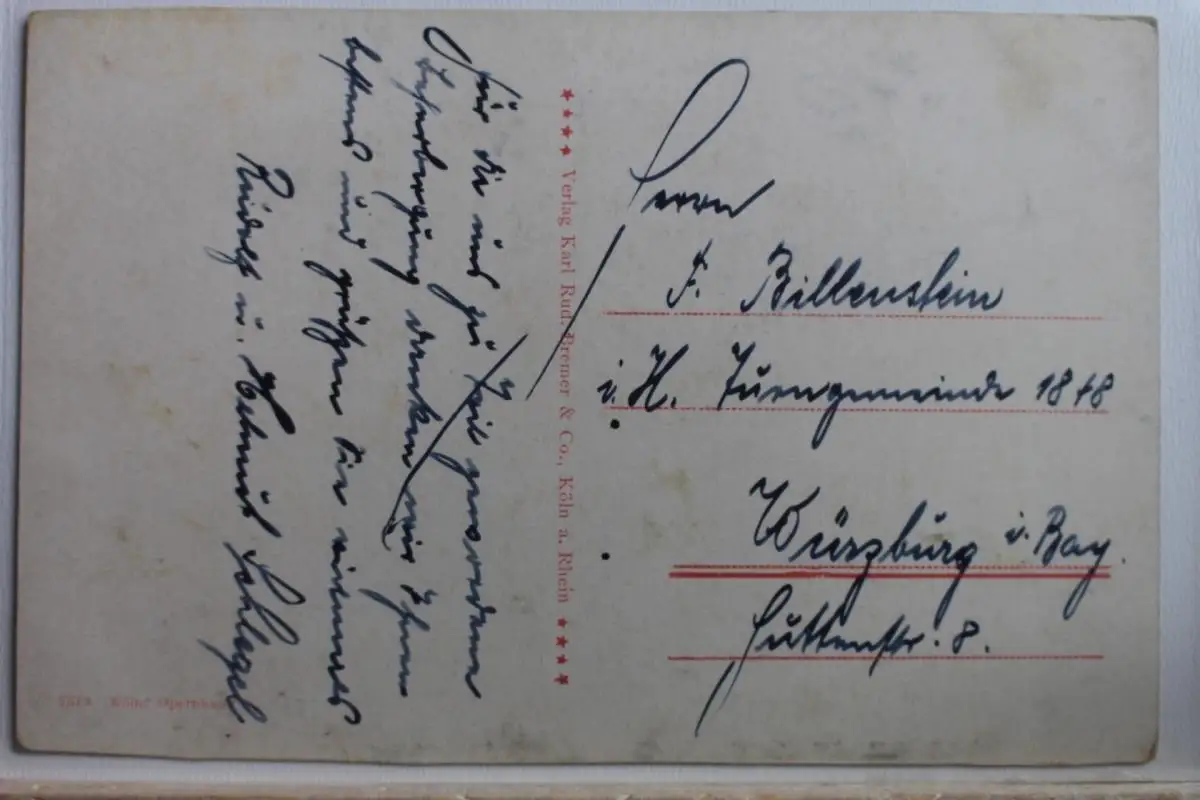 Für die uns zu Teil gewordene
Beherbergung danken wir Ihnen
bestens und grüßen Sie
Rudolf u. Helmut Schlegel
★★★★ Verlag Karl Rud. Bremer & Co., Köln a. Rhein ★★★★
Herrn
F. Billenstein
i. H. Turngemeinde 1848
Würzburg i. Bay.
Huttenstr. 8.
Köln: Opernhaus